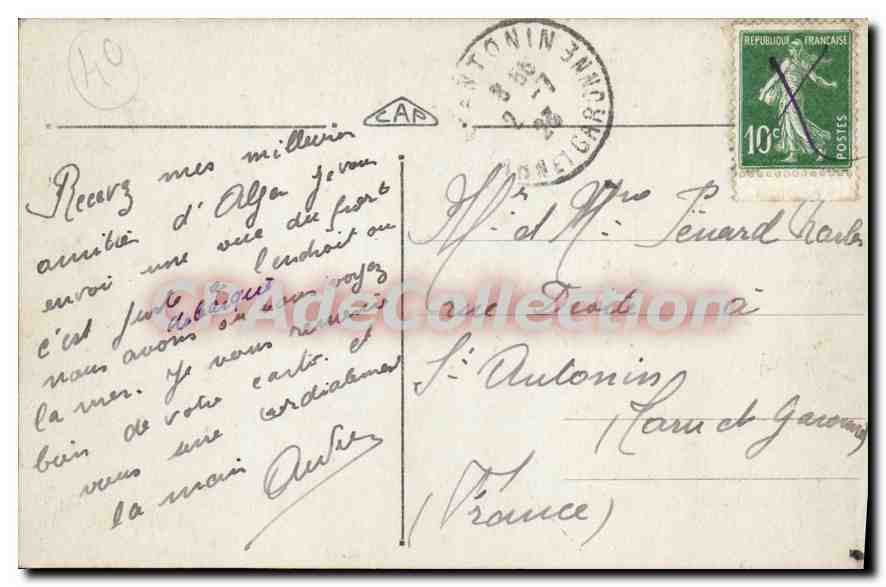 40
CAP
ANTONIN
TARN ET GARONNE
2 -7
REPUBLIQUE FRANÇAISE
10c
POSTES
Recevez mes meilleures
amitiés d'Alger je vous
envoi une vue du port
c'est juste a l'endroit ou
debarqué
nous avons vous voyez
la mer. Je vous remercie
bien de votre carte. et
vous serre cordialement
la main
André
Mr et Mme Pénard Charles
rue Droite à
St Antonin
(Tarn et Garonne)
(France)
CPAdeCollection